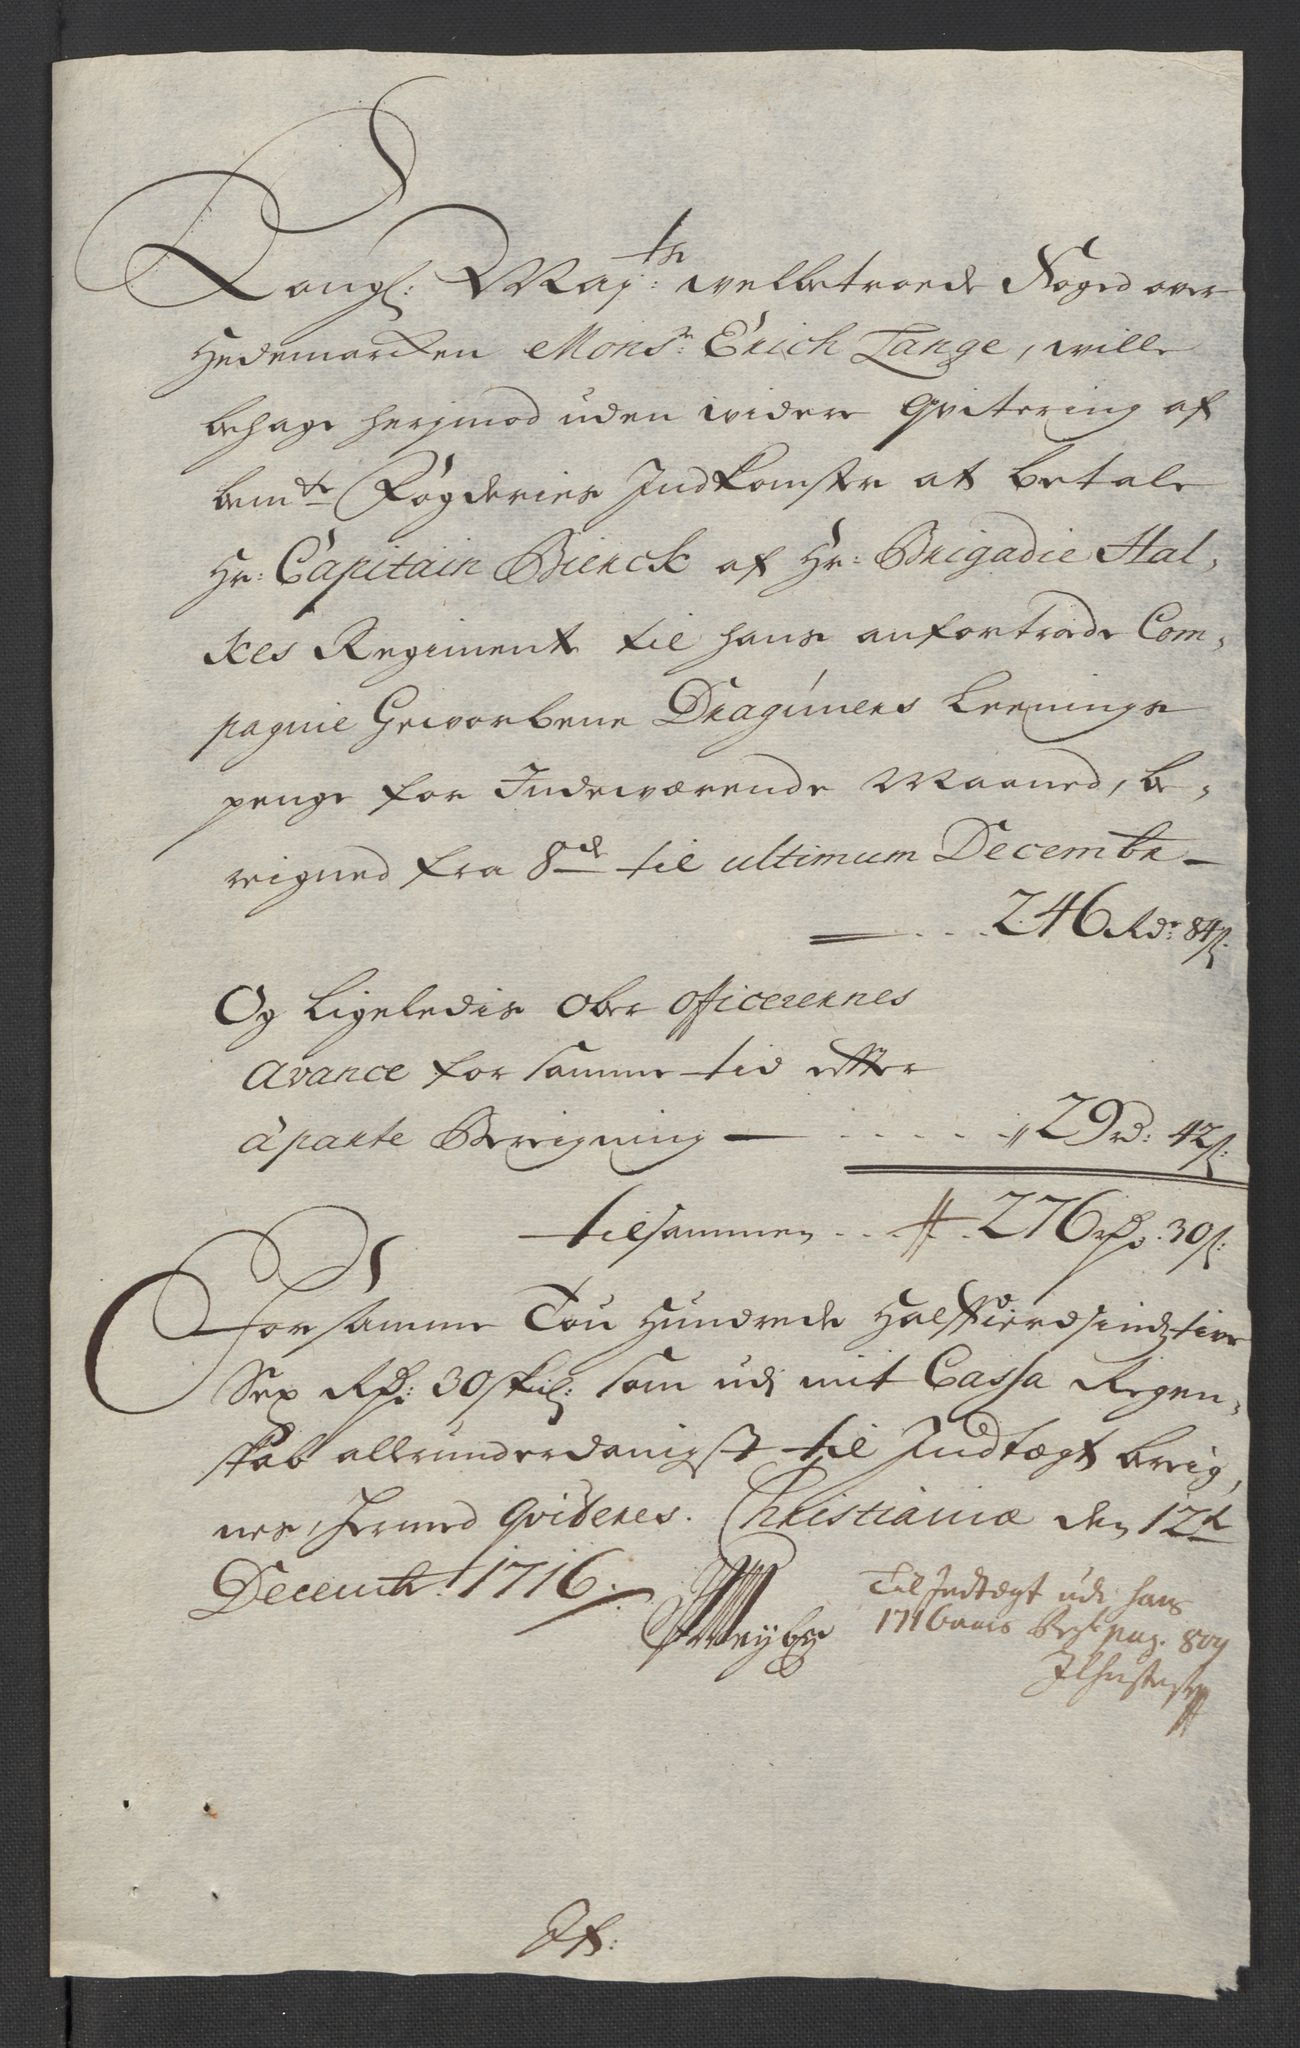 Kongl: Maj:ts welbetroede Foged over
Hedemarken Mons:r Erich Lange, wille
behage herimod uden widere Qvitering af
bem:te Fogderies Indkomster at betale
Hr: Capitain Bierck af Hr: Brigadie Hal,
kes Regiment til hans anfortroede Com,
pagnie Geworbene Dragúners Leenings
penge for Indeværende Maaned, be,
reigned fra 8de til ultimum Decembr
246 Rdr 84 s:
Og Ligeledis Ober Officerernes
Avance for samme tid efter
áparte Bereigning - 29 rd: 42 s:
tilsammen . . 276 rd: 30 s:
For samme Tou Hundrede Halffierdsindstive
Sex Rd: 30 skil: som udi mit Cassa Regen,
skab allerunderdanigst til Indtægt bereig,
nes, hermed Qviteres. Christianiæ den 12te
Decembr: 1716.
Til Indtægt udi hans
1716 aars Regsk: pag. 809